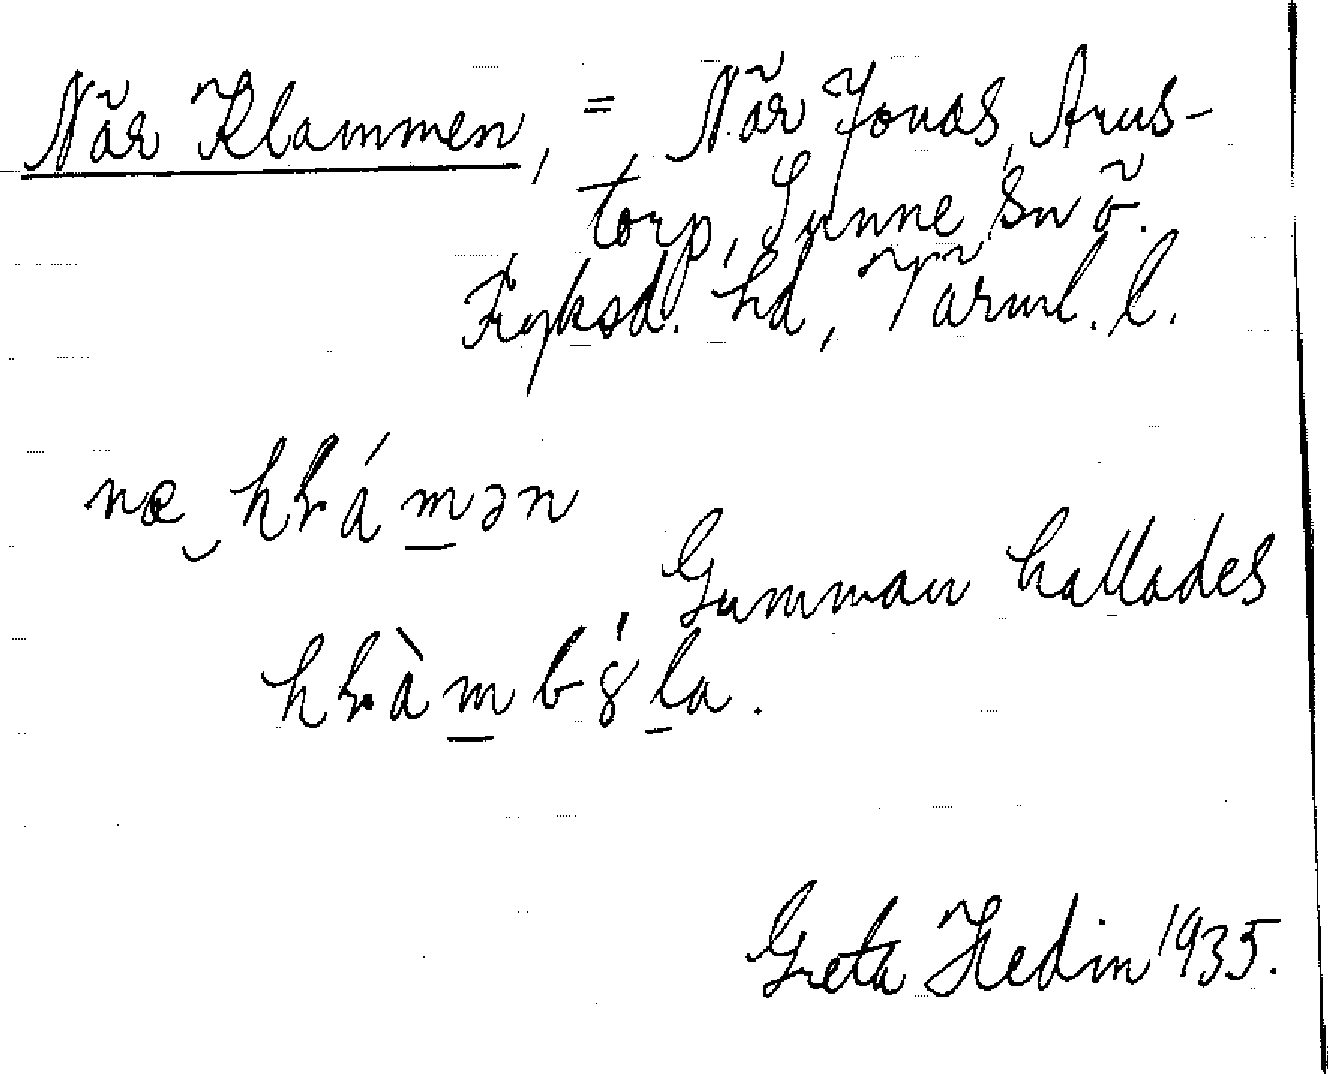 När Klammen, = När Jonas, Arns-
torp, Sunne sn ö.
Fryksd. hd, Värml. l.
Gumman kallades
Greta Hedin 1935.